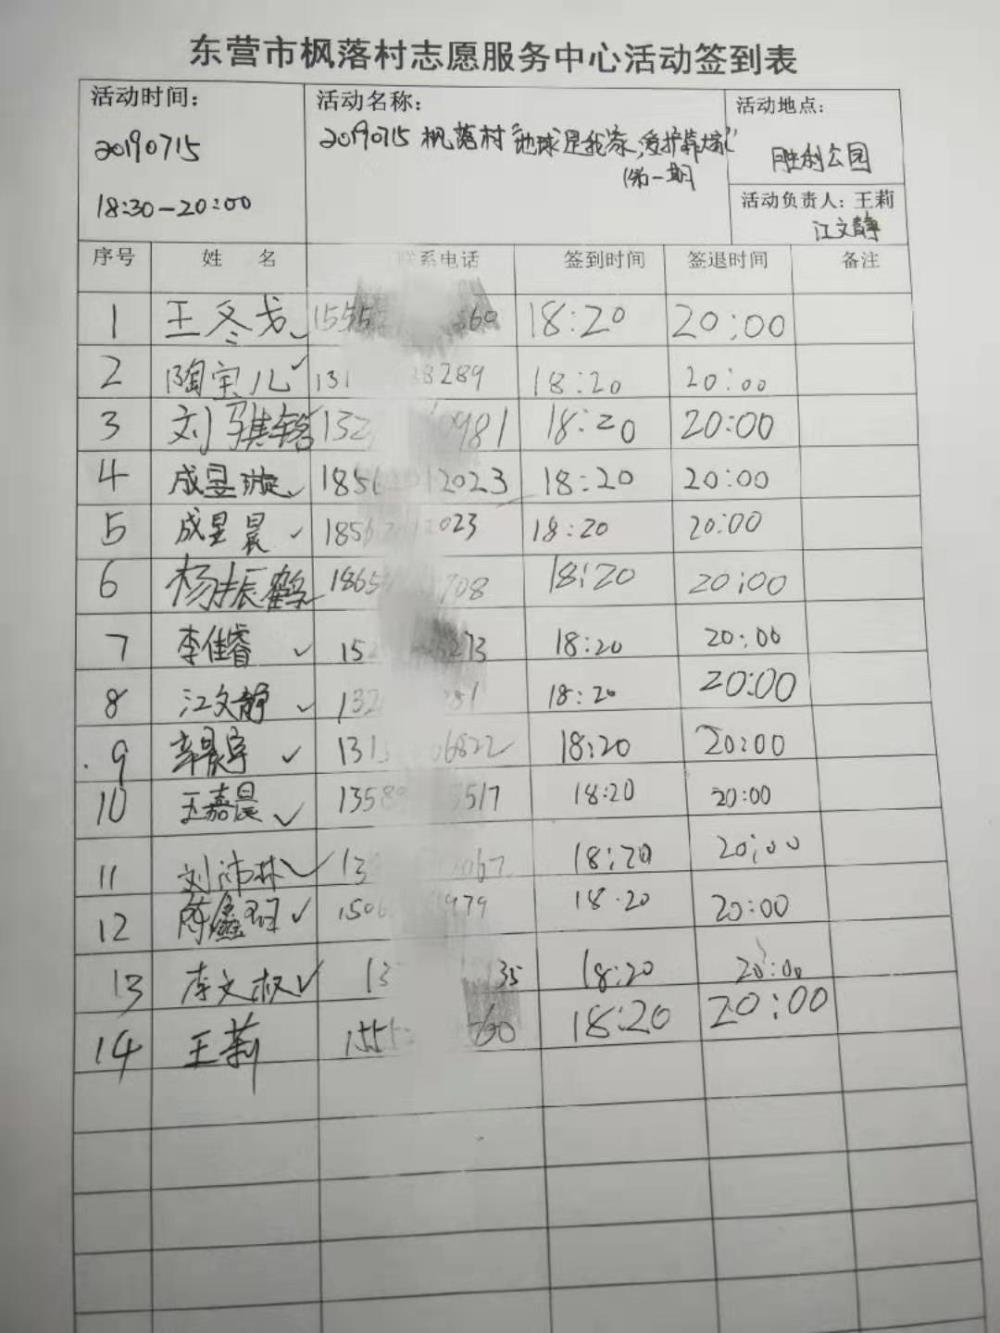 东营市枫落村志愿服务中心活动签到表
活动时间：
20190715
18:30-20:00
活动名称：
20190715 枫落村"地球是我家，爱护靠大家"
(第一期)
活动地点：
胜利公园
活动负责人：王莉
江文静
序号 姓 名 联系电话 签到时间 签退时间 备注
1 王冬 1555 60 18:20 20:00
2 陶宝儿 131 38289 18:20 20:00
3 刘骐 132 0981 18:20 20:00
4 成昱璇 1856 12023 18:20 20:00
5 成昱晨 1856 2023 18:20 20:00
6 杨振鹤 1865 708 18:20 20:00
7 李佳睿 152 273 18:20 20:00
8 江文静 132 81 18:20 20:00
9 辛晨宇 131 06822 18:20 20:00
10 王嘉晨 1358 5517 18:20 20:00
11 刘沛林 13 067 18:20 20:00
12 陈鑫 1506 979 18:20 20:00
13 李文权 13 35 18:20 20:00
14 王莉 155 60 18:20 20:00